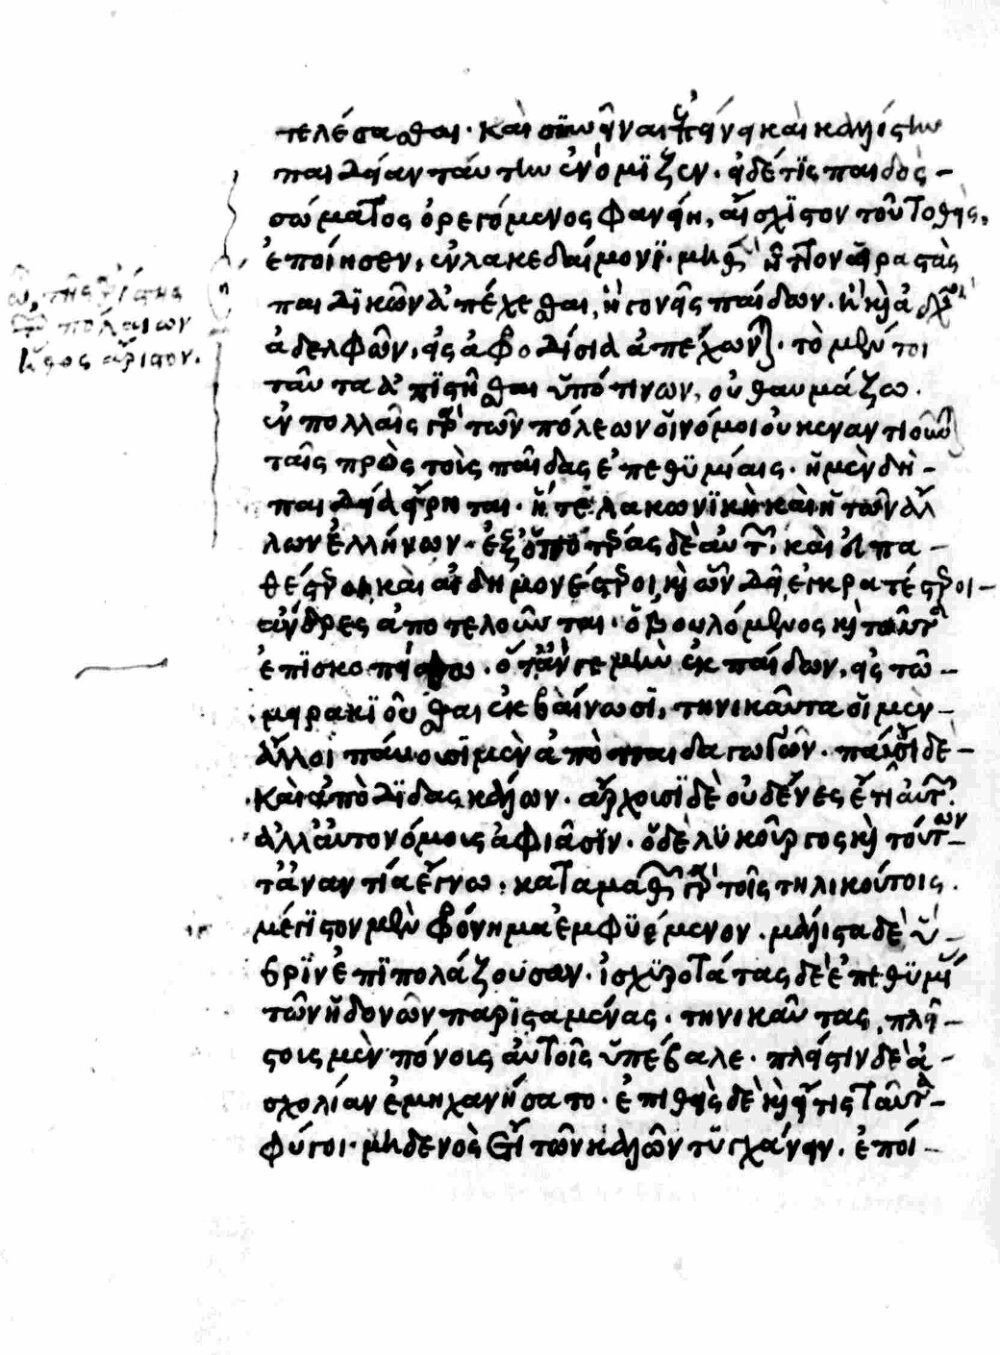 τελέσασθαι· καὶ συνεῖναι ἐπήνει καὶ καλλίστην
παιδείαν ταύτην ἐνόμιζεν· εἰ δέ τις παιδὸς
σώματος ὀρεγόμενος φανείη, αἴσχιστον τοῦτο θεὶς,
ἐποίησεν, ἐν λακεδαίμονι· μηδὲν ἧττον ἐραστὰς
παιδικῶν ἀπέχεσθαι, ἢ γονεῖς παίδων· ἢ καὶ ἀδελφοὶ
ἀδελφῶν, εἰς ἀφροδίσια ἀπέχονται· τὸ μέντοι
ταῦτα ἀπιστεῖσθαι ὑπό τινων, οὐ θαυμάζω·
ἐν πολλαῖς γὰρ τῶν πόλεων οἱ νόμοι οὐκ ἐναντιοῦνται
ταῖς πρὸς τοὺς παῖδας ἐπιθυμίαις· ἡ μὲν δὴ
παιδεία εἴρηται· ἥ τε λακωνικὴ καὶ ἡ τῶν ἄλ
λων ἑλλήνων· ἐξ ὁποτέρας δὲ αὐτῶν, καὶ εὐπει
θέστεροι, καὶ αἰδημονέστεροι, καὶ ὧν δεῖ ἐγκρατέστεροι
ἄνδρες ἀποτελοῦνται· ὁ βουλόμενος καὶ ταῦτα
ἐπισκοπείσθω· ὅταν γε μὴν ἐκ παίδων, εἰς τὸ
μειρακιοῦσθαι ἐκβαίνωσι, τηνικαῦτα οἱ μὲν
ἄλλοι παύουσι μὲν ἀπὸ παιδαγωγῶν· παύουσι δὲ
καὶ ἀπὸ διδασκάλων· ἄρχουσι δὲ οὐδένες ἔτι αὐτῶν·
ἀλλ' αὐτονόμους ἀφιᾶσιν· ὁ δὲ λυκοῦργος καὶ τούτων
τἀναντία ἔγνω· καταμαθὼν γὰρ τοῖς τηλικούτοις
μέγιστον μὲν φρόνημα ἐμφυόμενον· μάλιστα δὲ ὕ
βριν ἐπιπολάζουσαν· ἰσχυροτάτας δὲ ἐπιθυμίας
τῶν ἡδονῶν παρισταμένας· τηνικαῦτα, πλεί
στους μὲν πόνους αὐτοῖς ὑπέβαλε· πλείστην δὲ ἀ
σχολίαν ἐμηχανήσατο· ἐπιθεὶς δὲ καὶ εἴ τις ταῦτα
φύγοι· μηδενὸς ἔτι τῶν καλῶν τυγχάνειν· ἐποί